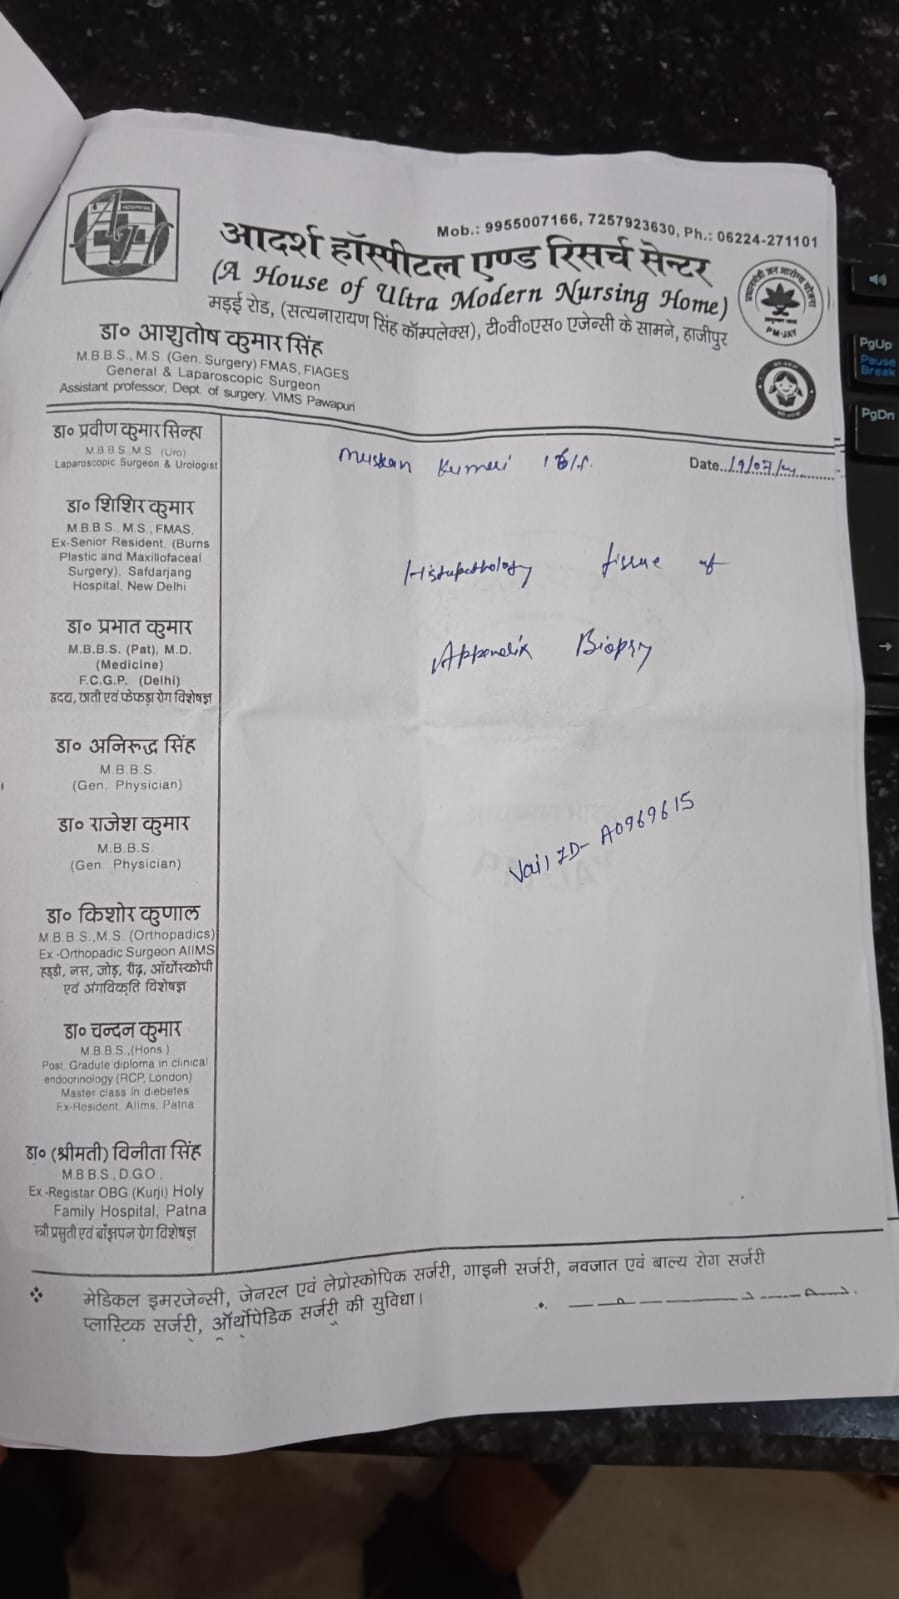 Mob.: 9955007166, 7257923630, Ph.: 06224-271101
आदर्श हॉस्पीटल एण्ड रिसर्च सेन्टर
(A House of Ultra Modern Nursing Home)
मड़ई रोड, (सत्यनारायण सिंह कॉम्पलेक्स), टी०वी०एस० एजेन्सी के सामने, हाजीपुर
HOSPITAL
PM-JAY
डा० आशुतोष कुमार सिंह
M.B.B.S., M.S. (Gen. Surgery) FMAS, FIAGES
General & Laparoscopic Surgeon
Assistant professor, Dept. of surgery, VIMS Pawapuri
डा० प्रवीण कुमार सिन्हा
M.B.B.S.,M.S (Uro)
Laparoscopic Surgeon & Urologist
Muskan Kumari
Date..
डा० शिशिर कुमार
M.B.B.S., M.S., FMAS,
Ex-Senior Resident, (Burns
Plastic and Maxillofaceal
Surgery), Safdarjang
Hospital, New Delhi
Histopathology tissue of
Appendix Biopsy
डा० प्रभात कुमार
M.B.B.S. (Pat), M.D.
(Medicine)
F.C.G.P. (Delhi)
हृदय, छाती एवं फेफड़ा रोग विशेषज्ञ
डा० अनिरूद्ध सिंह
M.B.B.S.
(Gen. Physician)
डा० राजेश कुमार
M.B.B.S.
(Gen. Physician)
Vail ID- A0969615
डा० किशोर कुणाल
M.B.B.S.,M.S. (Orthopadics)
Ex.-Orthopadic Surgeon AIIMS
हड्डी, नस, जोड़, रीढ़, ऑर्थोस्कोपी
एवं अंगविकृति विशेषज्ञ
डा० चन्दन कुमार
M.B.B.S.,(Hons.)
Post. Gradute diploma in clinical
endocrinology (RCP, London)
Master class in diebetes
Ex-Resident, AIIms, Patna
डा० (श्रीमती) विनीता सिंह
M.B.B.S., D.G.O.,
Ex.-Registar OBG (Kurji) Holy
Family Hospital, Patna
स्त्री प्रसुती एवं बाँझपन रोग विशेषज्ञ
मेडिकल इमरजेन्सी, जेनरल एवं लेप्रोस्कोपिक सर्जरी, गाइनी सर्जरी, नवजात एवं बाल्य रोग सर्जरी
प्लास्टिक सर्जरी, ऑर्थोपेडिक सर्जरी की सुविधा।
PgUp
Pause
Break
PgDn